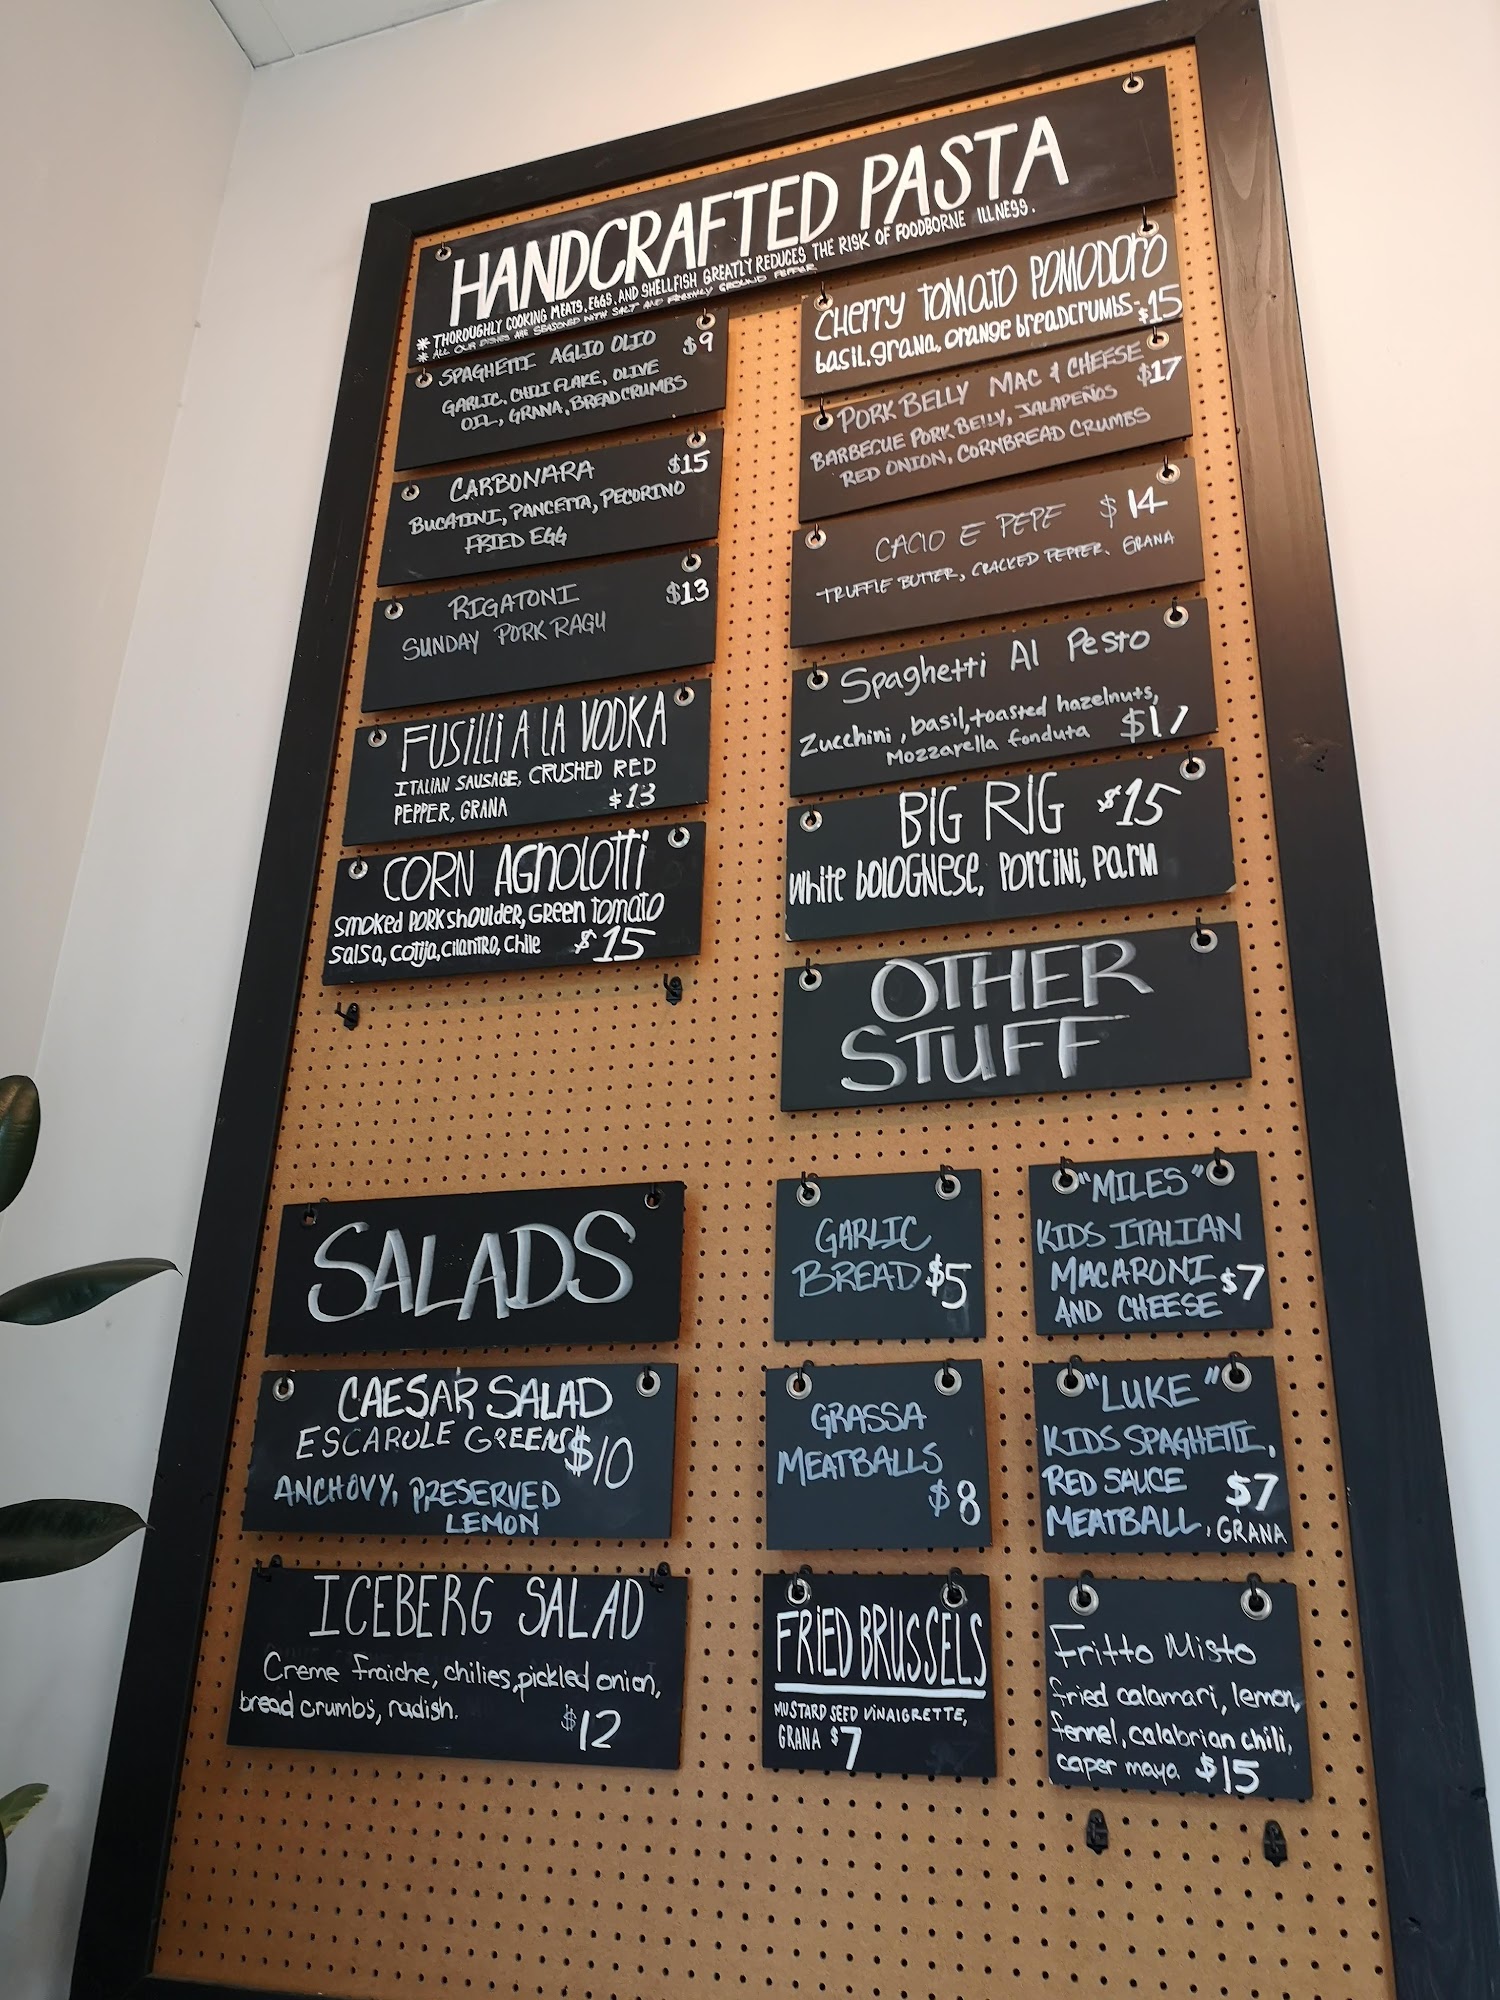 HANDCRAFTED PASTA
* THOROUGHLY COOKING MEATS, EGGS, AND SHELLFISH GREATLY REDUCES THE RISK OF FOODBORNE ILLNESS.
* ALL OUR DISHES ARE SEASONED WITH SALT AND FRESHLY GROUND PEPPER
SPAGHETTI AGLIO OLIO $9
GARLIC, CHILI FLAKE, OLIVE
OIL, GRANA, BREADCRUMBS
CARBONARA $15
BUCATINI, PANCETTA, PECORINO
FRIED EGG
RIGATONI $13
SUNDAY PORK RAGU
FUSILLI A LA VODKA
ITALIAN SAUSAGE, CRUSHED RED
PEPPER, GRANA $13
CORN AGNOLOTTI
SMOKED PORK SHOULDER, GREEN TOMATO
SALSA, COTIJA, CILANTRO, CHILE $15
CHERRY TOMATO POMODORO
basil, grana, orange breadcrumbs - $15
PORK BELLY MAC & CHEESE
$17
BARBECUE PORK BELLY, JALAPEÑOS
RED ONION, CORNBREAD CRUMBS
CACIO E PEPE $14
TRUFFLE BUTTER, CRACKED PEPPER, GRANA
Spaghetti Al Pesto
Zucchini, basil, toasted hazelnuts,
Mozzarella fonduta $17
BIG RIG $15
White BOLOGNESE, PORCINI, PARM
OTHER
STUFF
SALADS
CAESAR SALAD
ESCAROLE GREENS $10
ANCHOVY, PRESERVED
LEMON
ICEBERG SALAD
Creme fraiche, chilies, pickled onion,
bread crumbs, radish.
$12
GARLIC
BREAD $5
"MILES"
KIDS ITALIAN
MACARONI $7
AND CHEESE
GRASSA
MEATBALLS
$8
"LUKE"
KIDS SPAGHETTI,
RED SAUCE $7
MEATBALL, GRANA
FRIED BRUSSELS
MUSTARD SEED VINAIGRETTE,
GRANA $7
Fritto Misto
fried calamari, lemon,
fennel, calabrian chili,
caper mayo $15